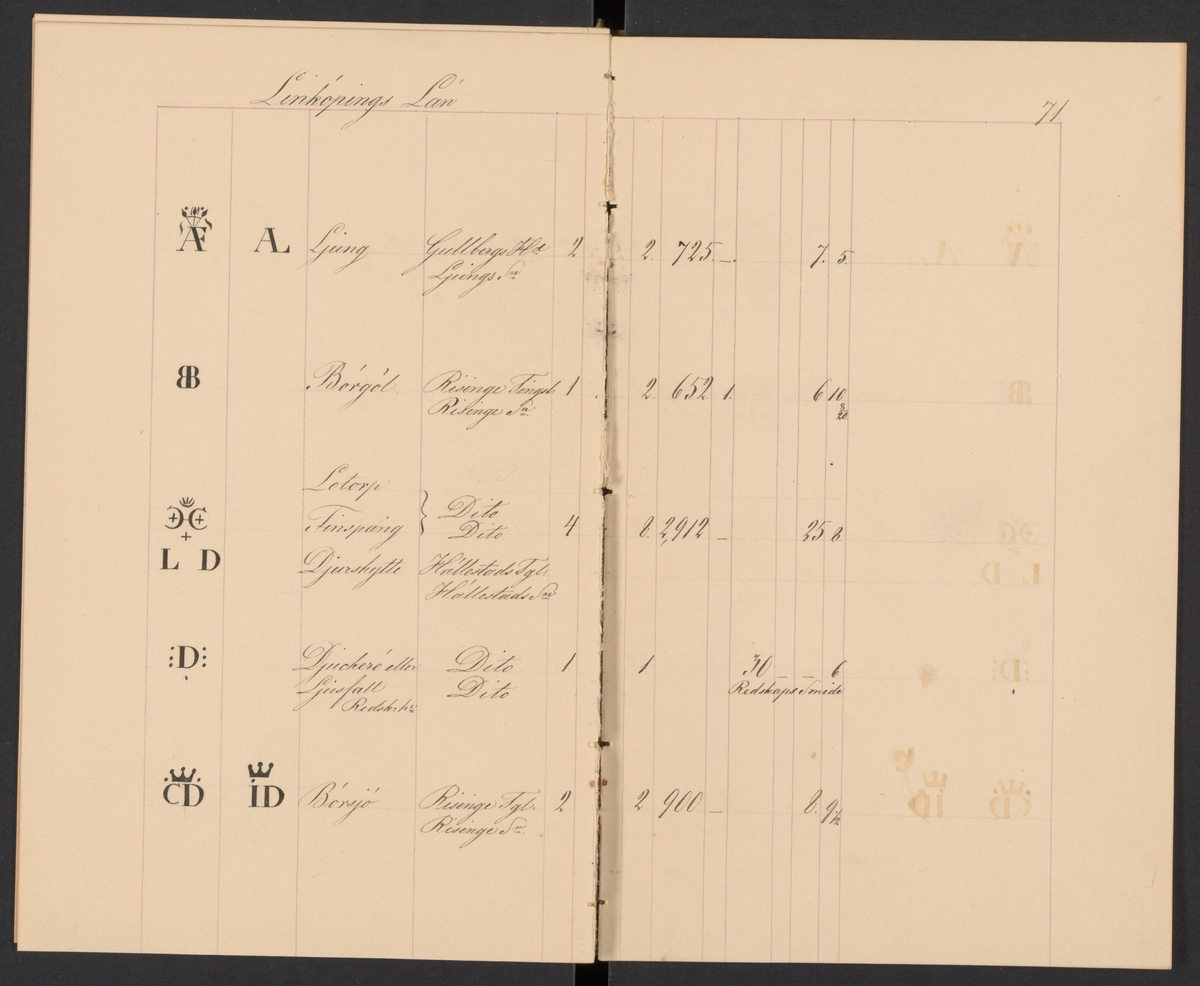 Linköpings Län 71
Æ AL Ljung Gullbergs Hd 2 2. 725. —. 7. 5.
Ljungs Sn
BB Börgöl. Risinge Tingsl. 1 2. 652 1. 6 10
Risinge Sn. 8/20.
Lotorp
Dito
Finspång Dito 4 8. 2,912 — 25 8.
L D Djurshytte Hällestads Tgl.
Hällestads Sn
:D: Djuckerö eller Dito 1 1 30 — — 6
Ljusfall Dito Redskaps Smide
CD ID Börsjö Risinge Tgl. 2 2 900 — 8. 9 1/2
Risinge Sn.